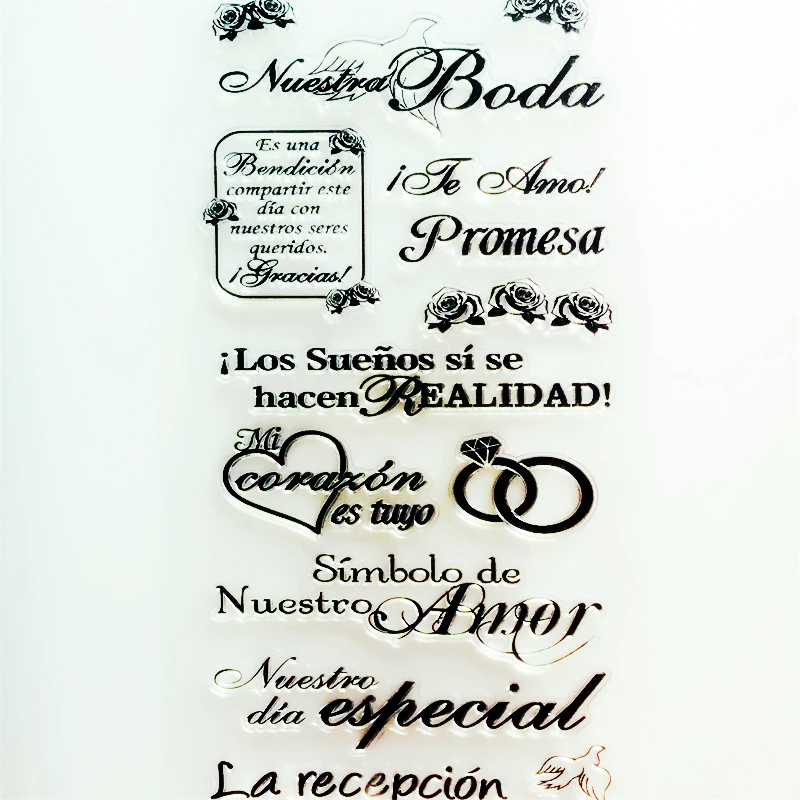 Nuestra Boda
Es una
Bendición
compartir este
día con
nuestros seres
queridos.
¡Gracias!
¡Te Amo!
Promesa
¡Los Sueños sí se
hacen REALIDAD!
Mi
corazón
es tuyo
Símbolo de
Nuestro Amor
Nuestro
día especial
La recepción